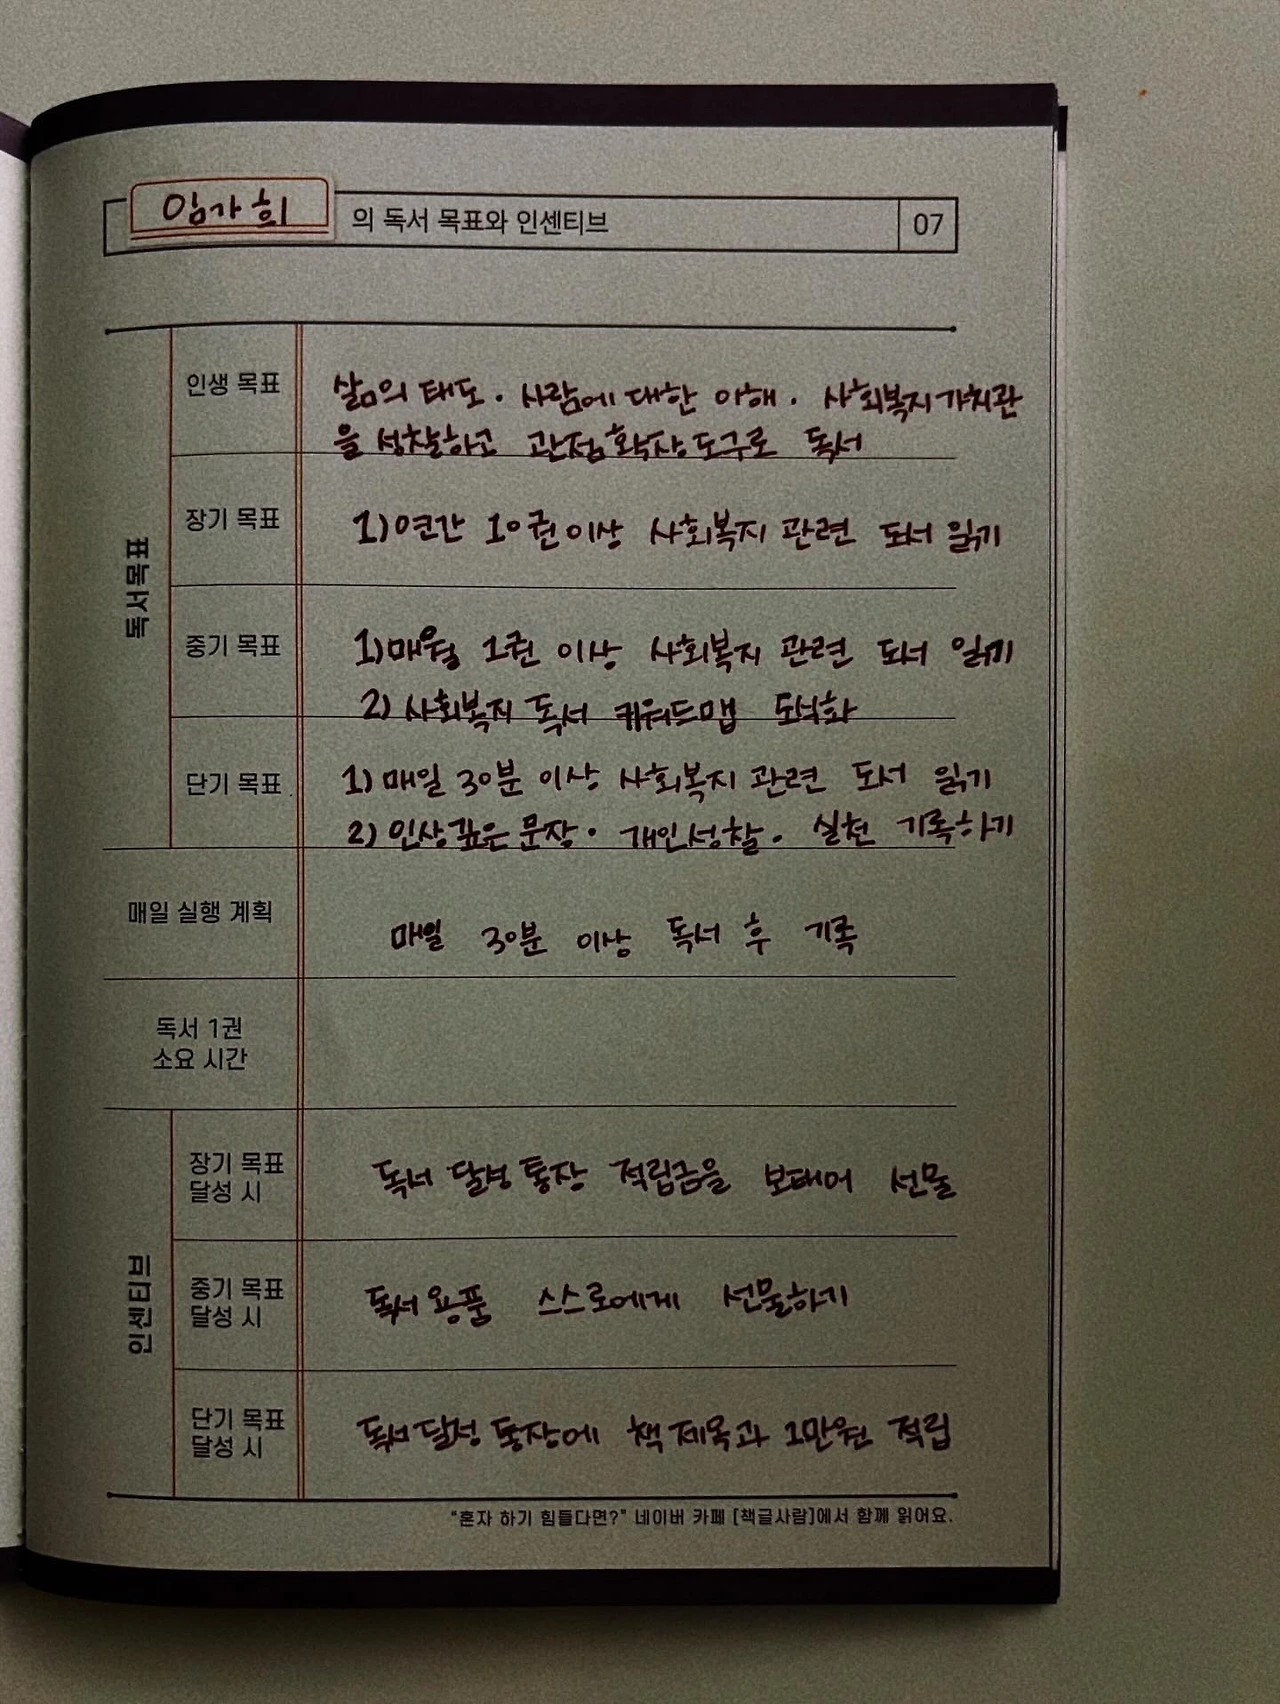 임가희 의 독서 목표와 인센티브 07
독서목표
인생 목표
삶의 태도. 사람에 대한 이해. 사회복지가치관
을 성찰하고 관점확장도구로 독서
장기 목표
1)연간 10권이상 사회복지 관련 도서 읽기
중기 목표
1)매월 1권 이상 사회복지 관련 도서 읽기
2) 사회복지 독서 키워드맵 도식화
단기 목표
1) 매일 30분 이상 사회복지 관련 도서 읽기
2) 인상깊은 문장. 개인성찰. 실천 기록하기
매일 실행 계획
매일 30분 이상 독서 후 기록
독서 1권
소요 시간
인센티브
장기 목표
달성 시
독서 달성 통장 적립금을 보태어 선물
중기 목표
달성 시
독서용품 스스로에게 선물하기
단기 목표
달성 시
독서달성 통장에 책 제목과 1만원 적립
"혼자 하기 힘들다면?" 네이버 카페 [책글사람]에서 함께 읽어요.